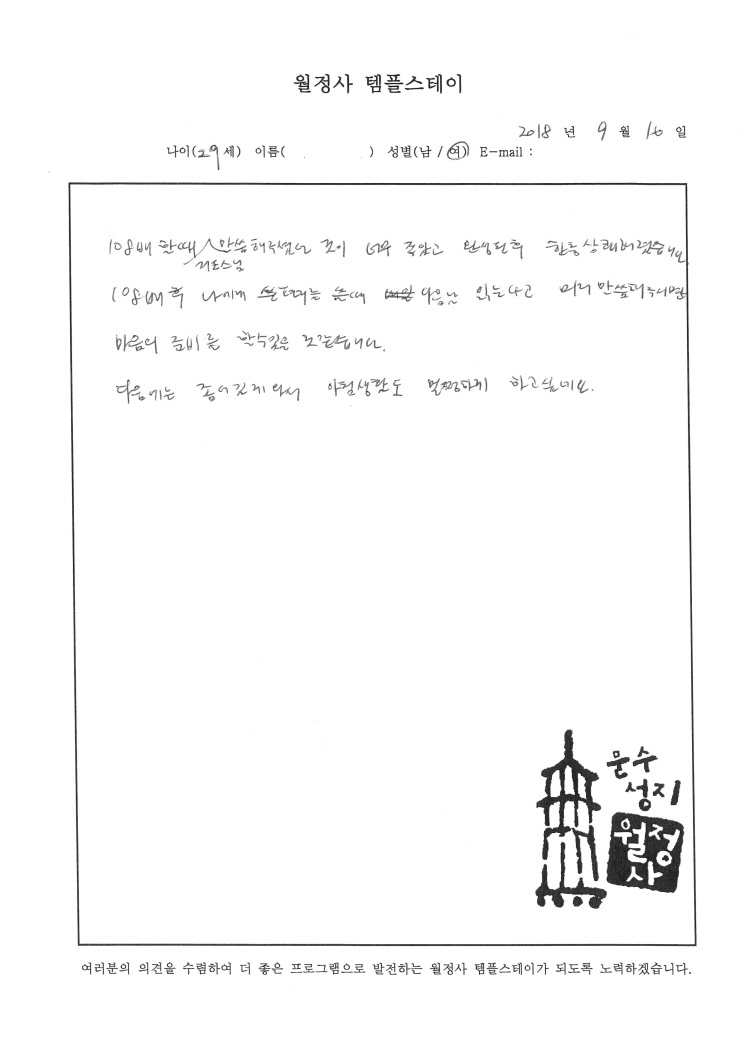 월정사 템플스테이
2018 년 9 월 16 일
나이(29세) 이름( ) 성별(남 / 여) E-mail :
108배 할때 지도스님 말씀해주셨던 것이 너무 좋았고 완성된후 한층 상쾌
108배 후 나에게 쓸때 다음날 읽는다고 미리 말씀해주시면
마음의 준비를 할수있을 것같습니다.
다음에는 좀더 길게 와서 하고싶네요.
문수
성지
월정
사
여러분의 의견을 수렴하여 더 좋은 프로그램으로 발전하는 월정사 템플스테이가 되도록 노력하겠습니다.